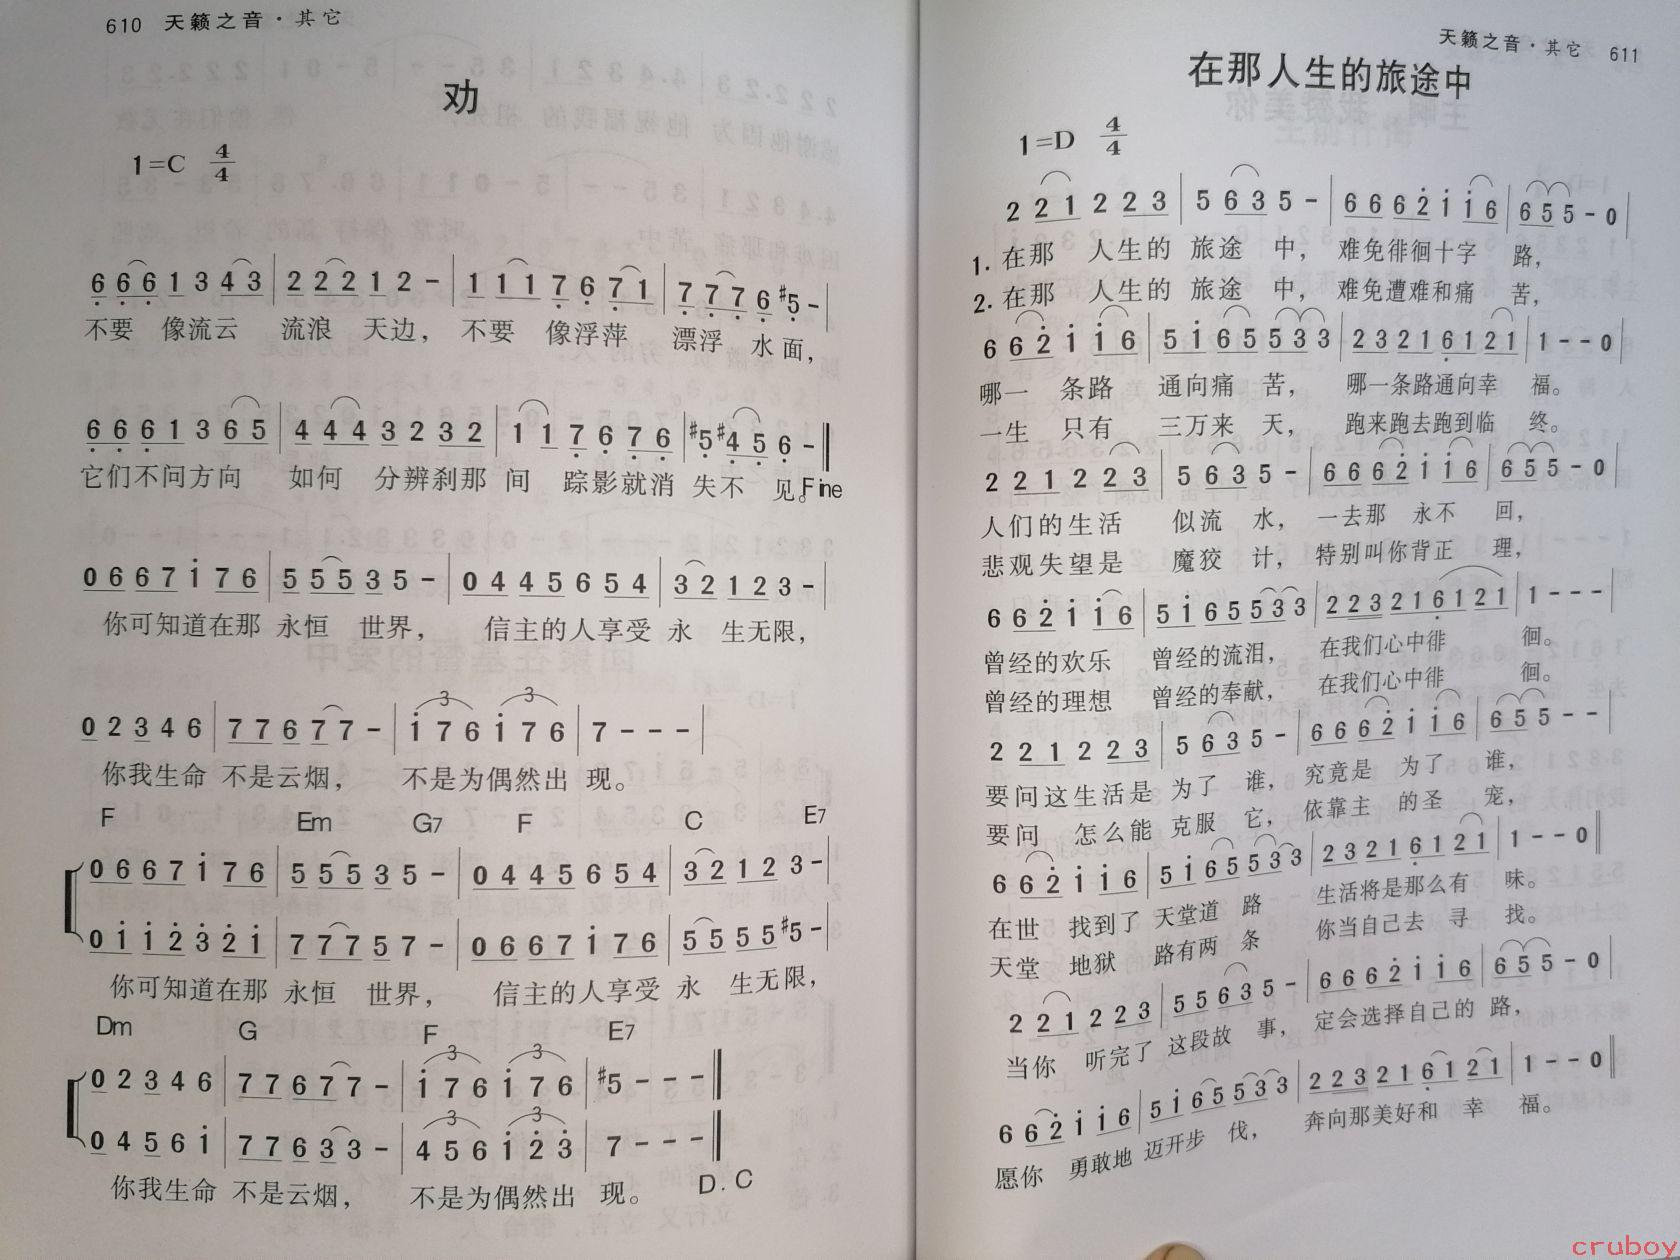 610 天籁之音·其它
劝
1=C 4/4
6 6 6 1 3 4 3 | 2 2 2 1 2 - | 1 1 1 7 6 7 1 | 7 7 7 6 #5 - |
不要 像流云 流浪 天边， 不要 像浮萍 漂浮 水面，
6 6 6 1 3 6 5 | 4 4 4 3 2 3 2 | 1 1 7 6 7 6 | #5 #4 5 6 - ‖
它们不问方向 如何 分辨刹那 间 踪影就消 失不 见。Fine
0 6 6 7 i 7 6 | 5 5 5 3 5 - | 0 4 4 5 6 5 4 | 3 2 1 2 3 - |
你可知道在那 永恒 世界， 信主的人享受 永 生无限，
0 2 3 4 6 | 7 7 6 7 7 - | i 7 6 i 7 6 | 7 - - - |
你我生命 不是云烟， 不是为偶然出 现。
F Em G7 F C E7
0 6 6 7 i 7 6 | 5 5 5 3 5 - | 0 4 4 5 6 5 4 | 3 2 1 2 3 - |
0 i i 2 3 2 i | 7 7 7 5 7 - | 0 6 6 7 i 7 6 | 5 5 5 5 #5 - |
你可知道在那 永恒 世界， 信主的人享受 永 生无限，
Dm G F E7
0 2 3 4 6 | 7 7 6 7 7 - | i 7 6 i 7 6 | #5 - - - ‖
0 4 5 6 i | 7 7 6 3 3 - | 4 5 6 i 2 3 | 7 - - - ‖
你我生命 不是云烟， 不是为偶然出 现。 D.C
天籁之音·其它 611
在那人生的旅途中
1=D 4/4
2 2 1 2 2 3 | 5 6 3 5 - | 6 6 6 2 i i 6 | 6 5 5 - 0 |
1. 在那 人生的 旅途 中， 难免徘徊十字 路，
2. 在那 人生的 旅途 中， 难免遭难和痛 苦，
6 6 2 i i 6 | 5 i 6 5 5 3 3 | 2 3 2 1 6 1 2 1 | 1 - - 0 |
哪一 条路 通向痛 苦， 哪一条路通向幸 福。
一生 只有 三万来 天， 跑来跑去跑到临 终。
2 2 1 2 2 3 | 5 6 3 5 - | 6 6 6 2 i i 6 | 6 5 5 - 0 |
人们的生活 似流 水， 一去那 永不 回，
悲观失望是 魔狡 计， 特别叫你背正 理，
6 6 2 i i 6 | 5 i 6 5 5 3 3 | 2 2 3 2 1 6 1 2 1 | 1 - - - |
曾经的欢乐 曾经的流泪， 在我们心中徘 徊。
曾经的理想 曾经的奉献， 在我们心中徘 徊。
2 2 1 2 2 3 | 5 6 3 5 - | 6 6 6 2 i i 6 | 6 5 5 - - |
要问这生活是 为了 谁， 究竟是 为了 谁，
要问 怎么能 克服 它， 依靠主 的圣 宠，
6 6 2 i i 6 | 5 i 6 5 5 3 3 | 2 3 2 1 6 1 2 1 | 1 - - 0 ‖
在世 找到了 天堂道 路 生活将是那么有 味。
天堂 地狱 路有两 条 你当自己去 寻 找。
2 2 1 2 2 3 | 5 5 6 3 5 - | 6 6 6 2 i i 6 | 6 5 5 - 0 |
当你 听完了 这段故 事， 定会选择自己的 路，
6 6 2 i i 6 | 5 i 6 5 5 3 3 | 2 2 3 2 1 6 1 2 1 | 1 - - 0 ‖
愿你 勇敢地 迈开步 伐， 奔向那美好和 幸 福。
cruboy